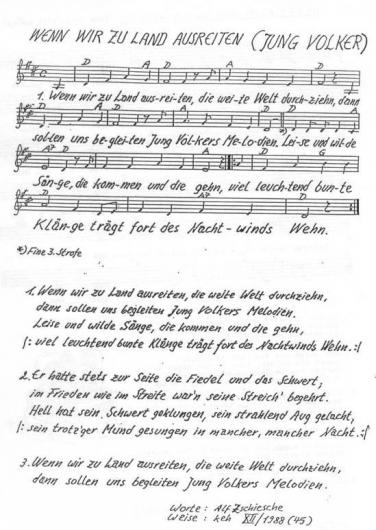 WENN WIR ZU LAND AUSREITEN (JUNG VOLKER)
D A D A
1. Wenn wir zu Land aus-rei-ten, die wei-te Welt durch-ziehn, dann
D A D A D D
sol-len uns be-glei-ten Jung Vol-kers Me-lo-dien. Lei-se und wil-de
A7 D A D G
Sän-ge, die kom-men und die gehn, viel leuch-tend bun-te
D A7 D
Klän-ge trägt fort des Nacht-winds Wehn.
*) Fine 3. Strofe
1. Wenn wir zu Land ausreiten, die weite Welt durchziehn,
dann sollen uns begleiten Jung Volkers Melodien.
Leise und wilde Sänge, die kommen und die gehn,
|: viel leuchtend bunte Klänge trägt fort des Nachtwinds Wehn. :|
2. Er hatte stets zur Seite die Fiedel und das Schwert,
im Frieden wie im Streite war'n seine Streich' begehrt.
Hell hat sein Schwert geklungen, sein strahlend Aug gelacht,
|: sein trotz'ger Mund gesungen in mancher, mancher Nacht. :|
3. Wenn wir zu Land ausreiten, die weite Welt durchziehn,
dann sollen uns begleiten Jung Volkers Melodien.
Worte: Alf Zschiesche
Weise: keh XII/1988 (45)